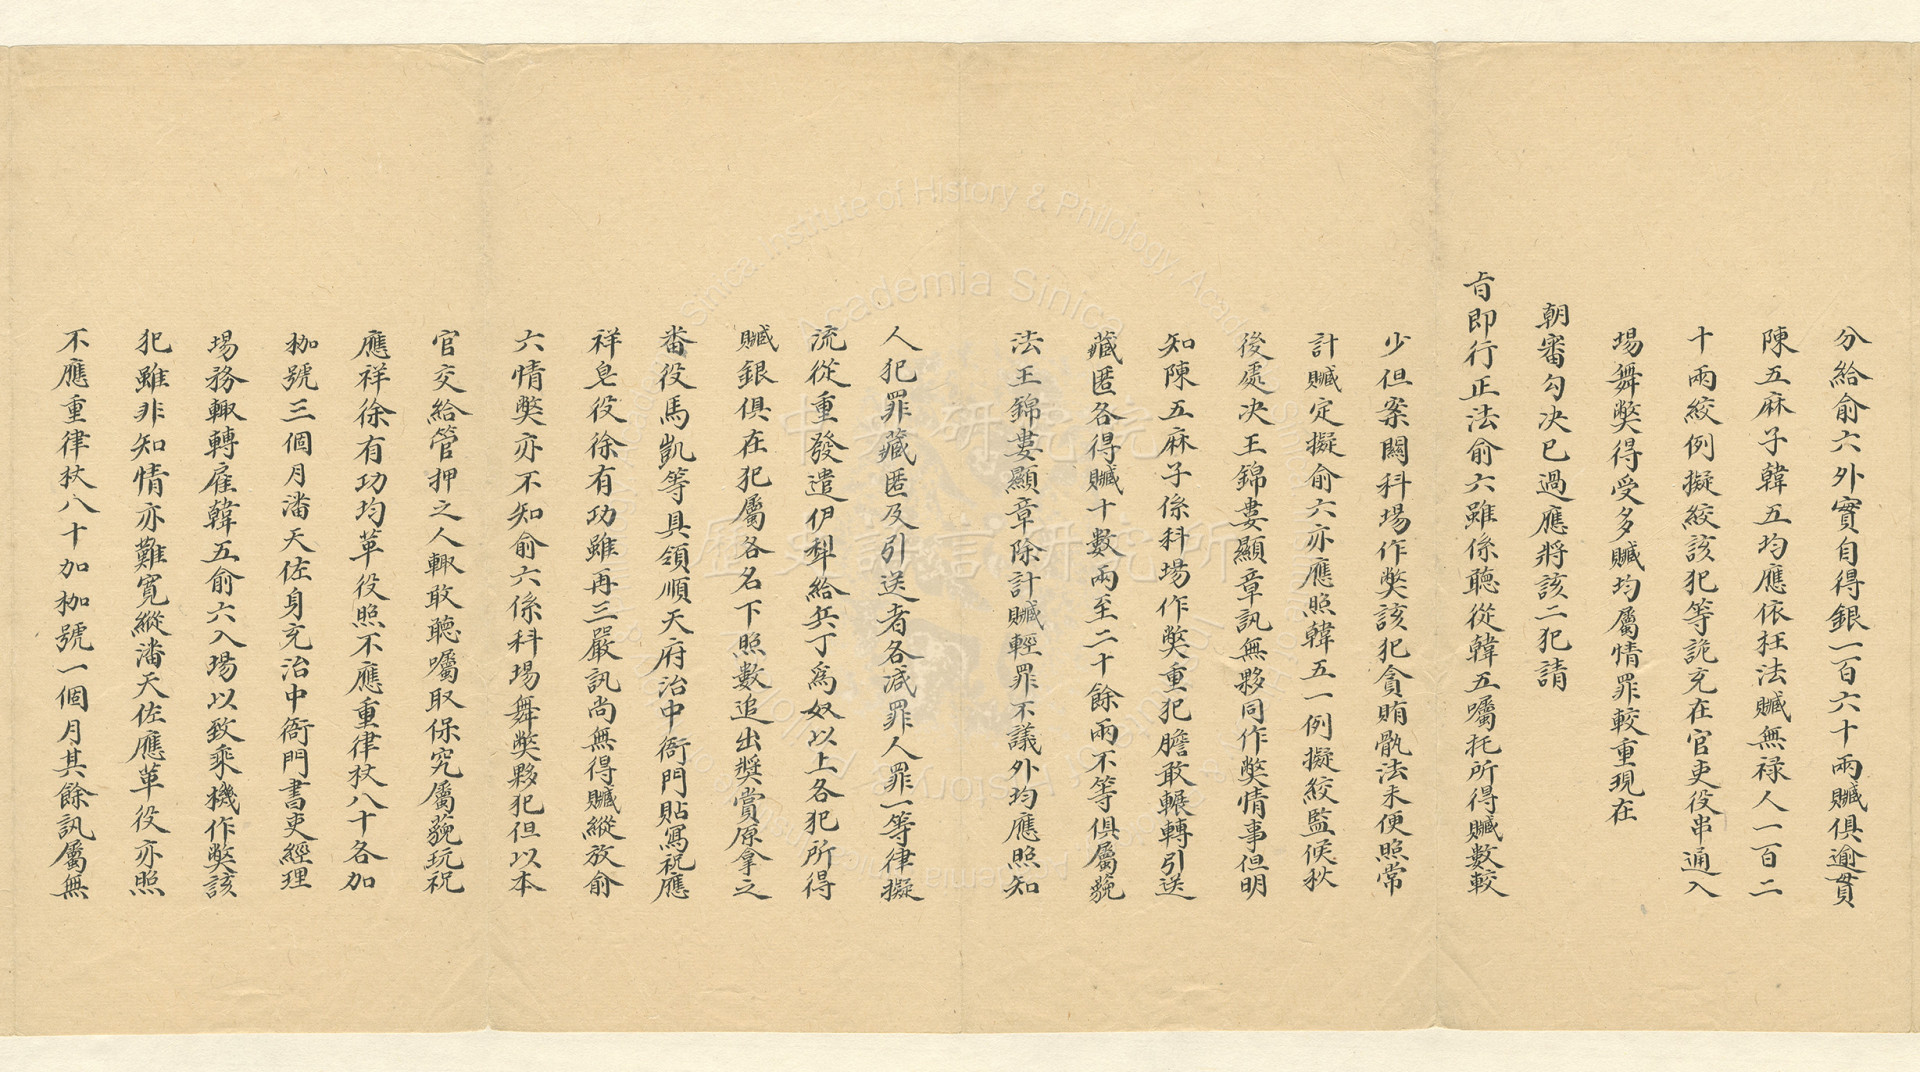 分給俞六外實自得銀一百六十兩贓俱逾貫
陳五麻子韓五均應依枉法贓無祿人一百二
十兩絞例擬絞該犯等詭充在官吏役串通入
場舞獘得受多贓均屬情罪較重現在
朝審勾决已過應將該二犯請
旨即行正法俞六雖係聽從韓五囑托所得贓數較
少但案關科場作獘該犯貪賄骫法未便照常
計贓定擬俞六亦應照韓五一例擬絞監候秋
後處决王錦婁顯章訊無夥同作獘情事但明
知陳五麻子係科場作獘重犯膽敢輾轉引送
藏匿各得贓十數兩至二十餘兩不等俱屬藐
法王錦婁顯章除計贓輕罪不議外均應照知
人犯罪藏匿及引送者各减罪人罪一等律擬
流從重發遣伊犁給兵丁為奴以上各犯所得
贓銀俱在犯屬各名下照數追出獎賞原拿之
番役馬凱等具領順天府治中衙門貼寫祝應
祥皂役徐有功雖再三嚴訊尚無得贓縱放俞
六情獘亦不知俞六係科場舞獘夥犯但以本
官交給管押之人輙敢聽囑取保究屬藐玩祝
應祥徐有功均革役照不應重律杖八十各加
枷號三個月潘天佐身充治中衙門書吏經理
場務輙轉雇韓五俞六入場以致乘機作獘該
犯雖非知情亦難寬縱潘天佐應革役亦照
不應重律杖八十加枷號一個月其餘訊屬無
中央研究院
歷史語言研究所
Academia Sinica
Institute of History & Philology, Academia Sinica